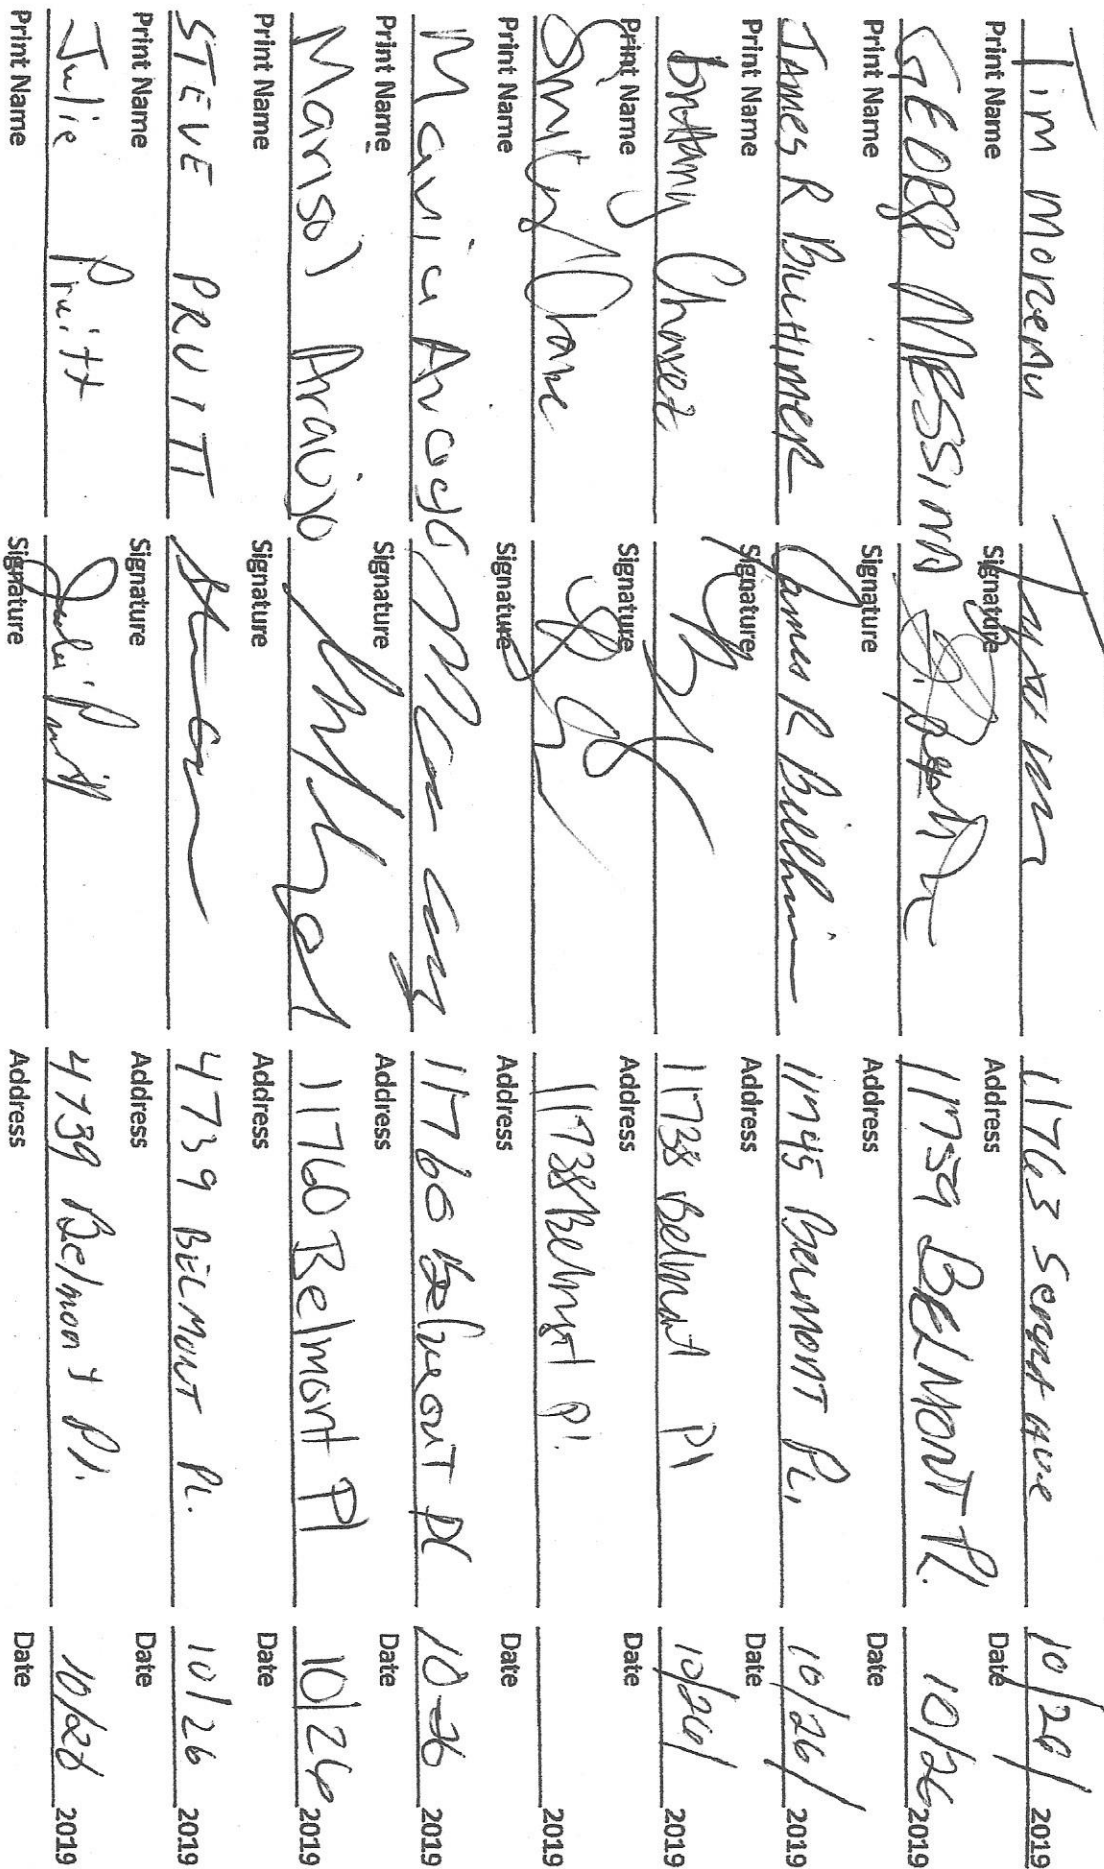 Tim 11763 10/26/ 2019
Print Name Signature Address Date
GEORGE MESSINA 11759 BELMONT Pl. 10/26 2019
Print Name Signature Address Date
JAMES R BILLHIMER James R Billhimer 11745 BELMONT PL. 10/26/ 2019
Print Name Signature Address Date
Brittany Chavez 11738 Belmont Pl 10/26/ 2019
Print Name Signature Address Date
11738 Belmont Pl. 2019
Print Name Signature Address Date
Maria 11760 Belmont Pl 10-26 2019
Print Name Signature Address Date
Marisol Araujo 11760 Belmont Pl 10/26 2019
Print Name Signature Address Date
STEVE PRUITT 4739 BELMONT PL. 10/26 2019
Print Name Signature Address Date
Julie Pruitt Julie Pruitt 4739 Belmont Pl. 10/26 2019
Print Name Signature Address Date